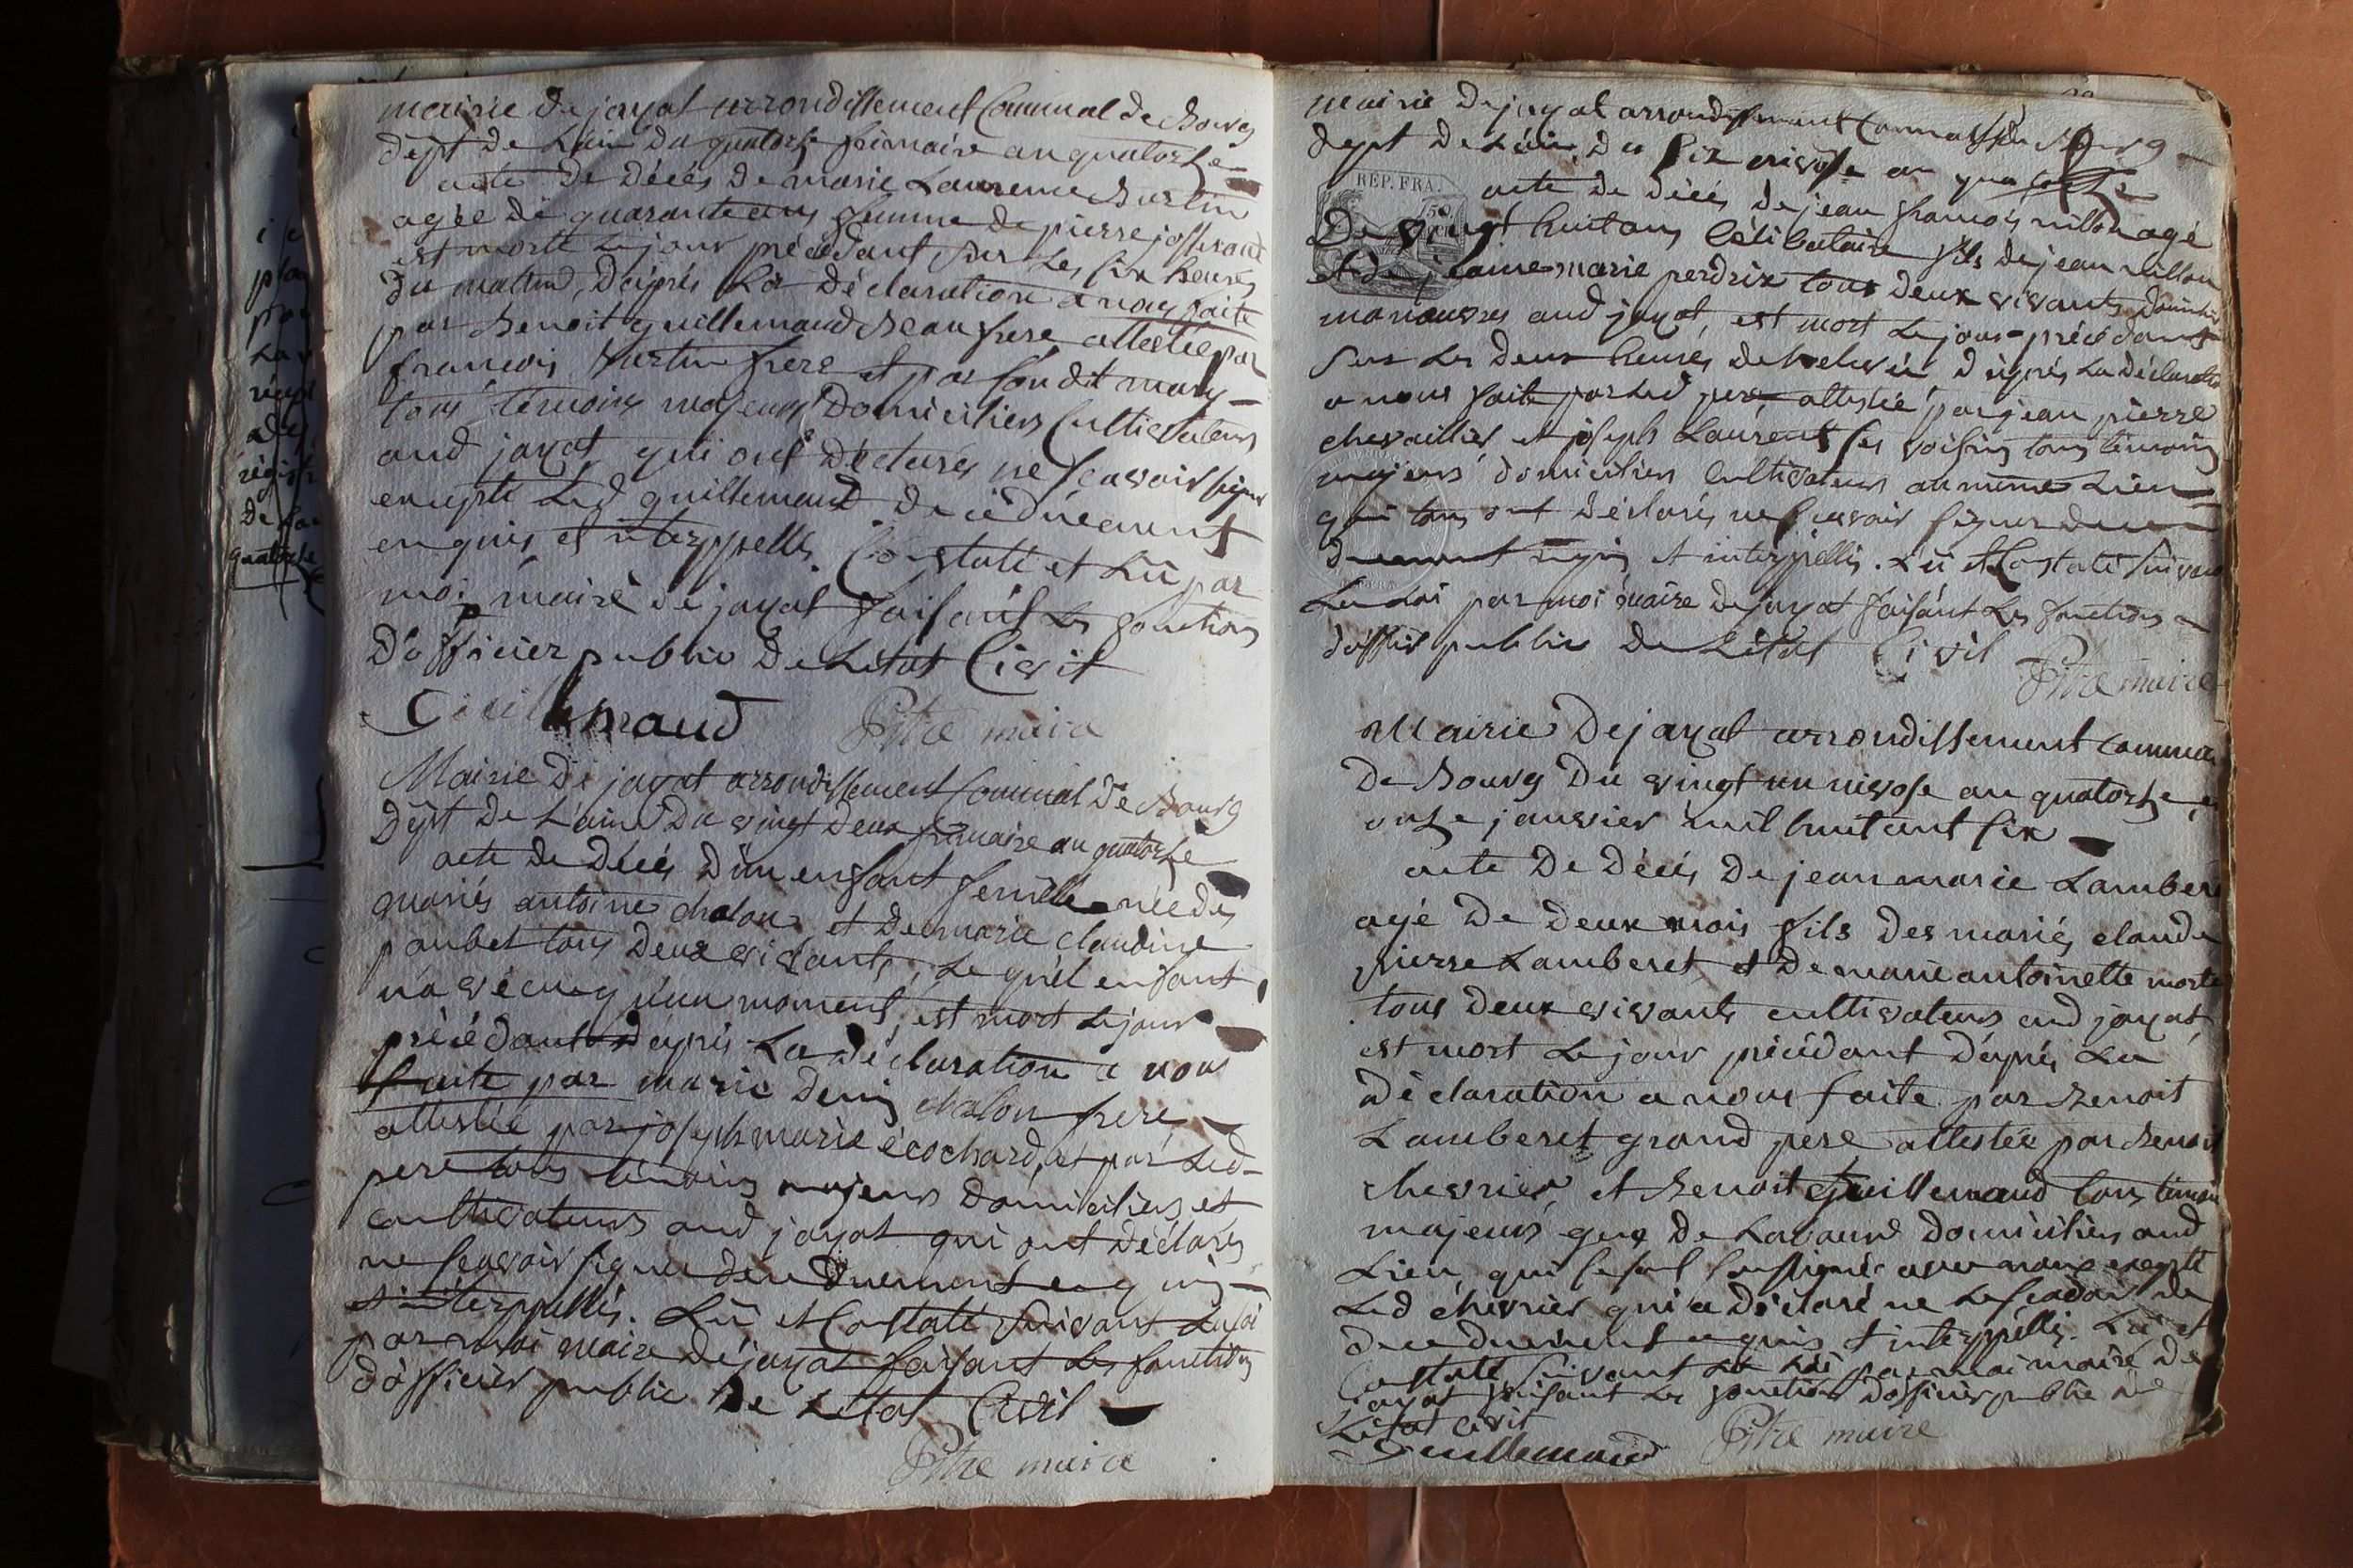 mairie de jayat arrondissement Communal de Bourg
dept de L'ain du quatorze frimaire an quatorze
acte de décés de marie Laurence Burtin
agée de quarante ans femme de pierre josserand
est morte le jour précédant sur les six heures
du mattin, d'aprés la déclaration a nous faite
par Benoit guillemaud Beaufrere attestée par
francois Burtin frere et par son dit mary
tous témoins majeurs domiciliers Cultivateurs
aud jayat, qui ont déclarés ne scavoir signer
excepté led guillemaud de ce duement
enquis et interppellés. Constaté et Lû par
moi maire de jayat faisant les fonctions
d'officier public de Létat Civil
Guillemaud Pitre maire
Mairie de jayat arrondissement Communal de Bourg
Dept de L'ain Du vingt deux frimaire an quatorze
acte de décés d'un enfant femelle née des
mariés antoine chalon et de marie claudine
paubet tous deux vivants, le quel enfant
n'a vécu qu'un moment, est mort le jour
précédant d'aprés La déclaration a nous
faite par marie denis chalon frere
attestée par joseph marie écochard, et par led
pere tous témoins majeurs domiciliers et
cultivateurs aud jayat qui ont déclarés
ne scavoir signer de ce duement enquis
et interppellés. Lû et Constaté suivant La loi
par moi maire de jayat faisant les fonctions
d'officier public de Létat Civil
Pitre maire
mairie de jayat arrondissement Communal de Bourg
dept de L'ain, du six nivose an quatorze
REP. FRA.
acte de décés de jean francois millon agé
De vingt huit ans Célibataire fils de jean millon
et de jeanne marie perdrix tous deux vivants domiciliés
manouvres aud jayat, est mort le jour précédant
sur les deux heures de relevée d'aprés La déclaration
a nous faite par led pere attestée par jean pierre
chevaillier et joseph Laurent ses voisins tous témoins
majeurs domiciliers Cultivateurs au même Lieu
qui tous ont déclarés ne scavoir signer de ce
duement enquis et interpellés. Lû et Constaté suivant
La Loi par moi maire de jayat faisant les fonctions
d'officier public de Létat Civil
Pitre maire
Mairie De jayat arrondissement communal
De Bourg Du vingt un nivose an quatorze
onze janvier mil huit cent six
acte De Décés De jean marie Lamberet
agé De Deux mois fils Des mariés claude
pierre Lamberet et De marie antoinette morte
tous deux vivants cultivateurs aud jayat,
est mort le jour précédant d'aprés La
déclaration a nous faite par Benoit
Lamberet grand pere attestée par Benoit
chevrier, et Benoit Guillemaud tous témoins
majeurs domiciliers aud
Lieu, qui se sont soussignés avec nous excepté
Led chevrier qui a déclaré ne le scavoir
de ce duement enquis et interppellés. Lû et
Constaté suivant La Loi par moi maire de
jayat faisant les fonctions d'officier public de
Létat civil
Guillemaud Pitre maire